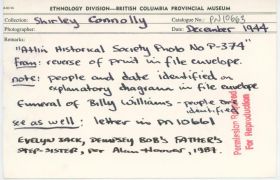 ETHNOLOGY DIVISION—BRITISH COLUMBIA PROVINCIAL MUSEUM
Collection: Shirley Connolly Catalogue No.: PN10663
Photographer: Date: December 1944
Remarks:
"Atlin Historical Society Photo No P-374"
from: reverse of print in file envelope.
note: people and date identified on
explanatory diagrams in file envelope
Funeral of Billy Williams - people are
identified
see as well: letter in PN10661
EVELYN JACK, DEMPSEY BOB'S FATHER'S
STEP-SISTER, per Alan Hoover, 1987.
Permission Required